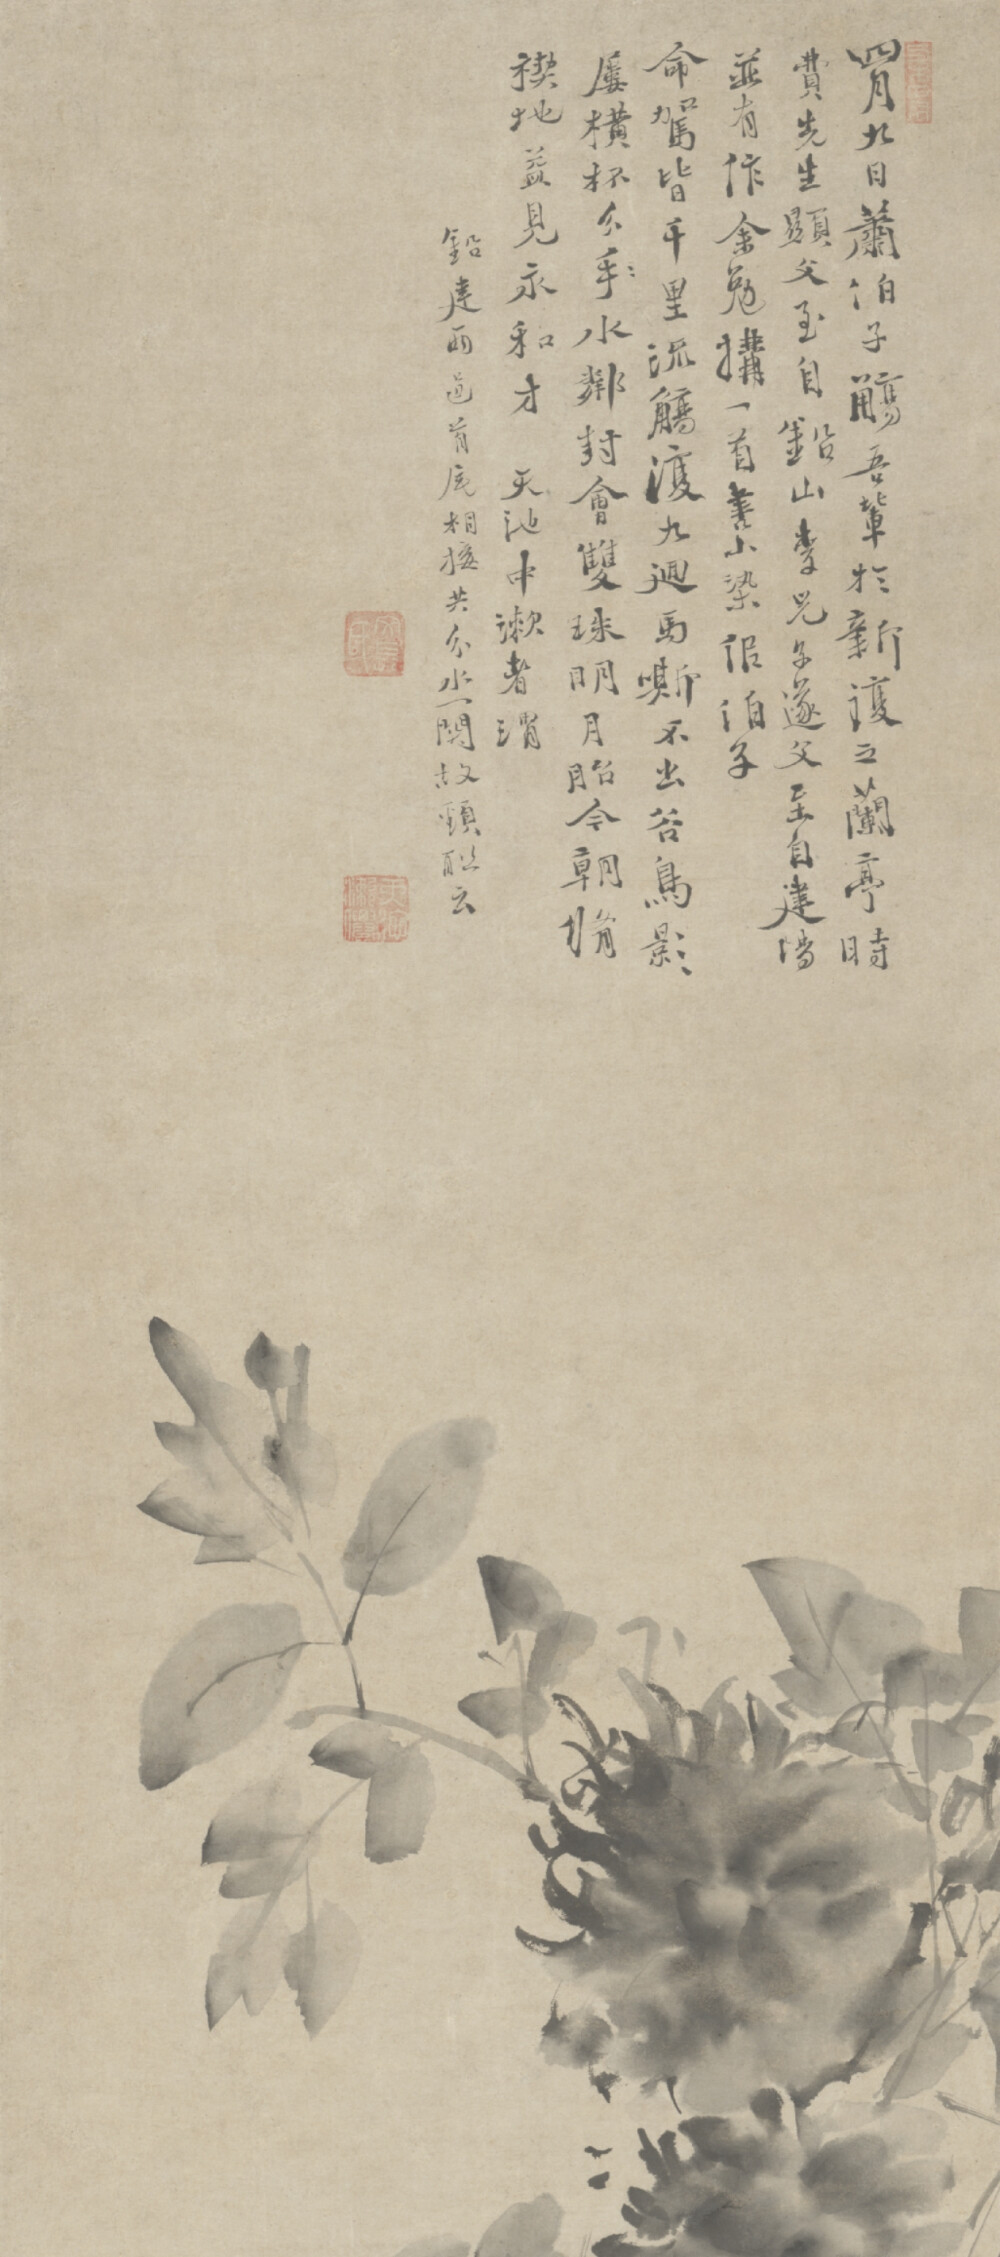 四月九日蕭伯子觴吾輩於新復之蘭亭時
費先生顯父至自鉛山李兄子遂父至自建陽
並有作余勉搆一首書小染侶伯子
命駕皆千里流觴渡九迴馬嘶不出谷鳥影
屢橫杯分手水鄰封會雙珠明月胎今朝脩
禊地益見永和才 天池中漱者渭
鉛建兩邑首尾相接共分水一關故頸聯云